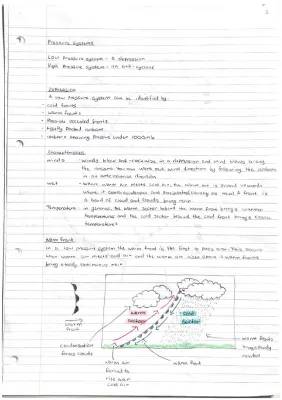 Pressure Systems
Low Pressure system - A depression
High Pressure system - An anti-cyclone
Depression
A Low Pressure System can be identified by:
- cold fronts
- warm fronts
- occluded fronts
- tightly packed isobars
- isobars showing pressure under 1000mb
Characteristics
winds - winds blow anti-clockwise in a depression and wind blows along
the isobars. You can work out wind direction by following the isobars
in an anti-clockwise direction
wet - where warm air meets cold air, the warm air is forced upwards
where it cools, condenses and precipitation occurs. As most fronts
a band of cloud and usually bring rain.
Temperature - In general, the warm sector behind the warm front brings warmer
temperatures and the cold sector behind the cold front brings cooler
temperatures
Warm Front
In a low pressure system the warm front is the first to pass over. This occurs
when warm air meets cold air and the warm air rises above it. Warm fronts
bring steady continuous rain
warm
sector
cold
sector
warm
front
condensation
forms clouds
warm air
forced to
rise over
cold air
warm front
warm fronts